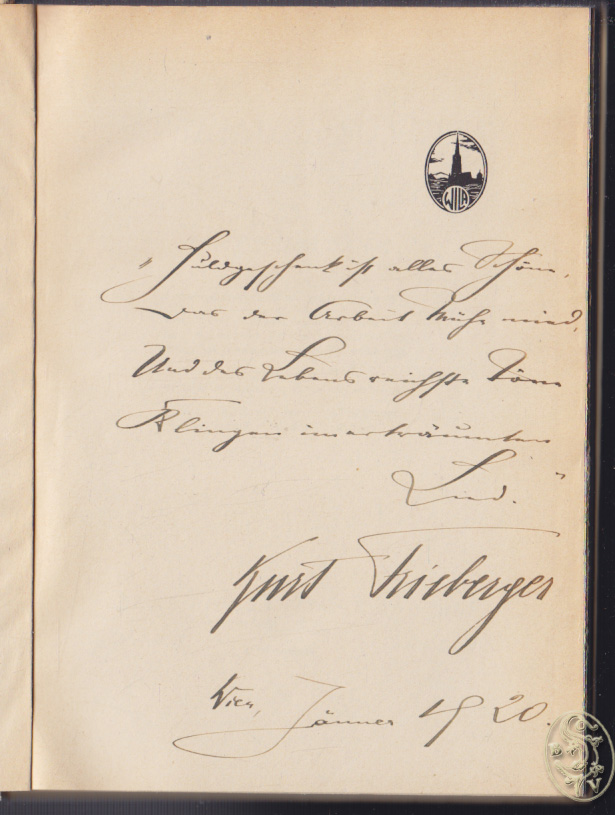 WILA
„Huldgeschenk ist alles Schöne,
Das der Arbeit Mühe mied,
Und des Lebens reichste Töne
Klingen im erträumten
Lied."
Kurt Frieberger
Wien, Jänner 1920.